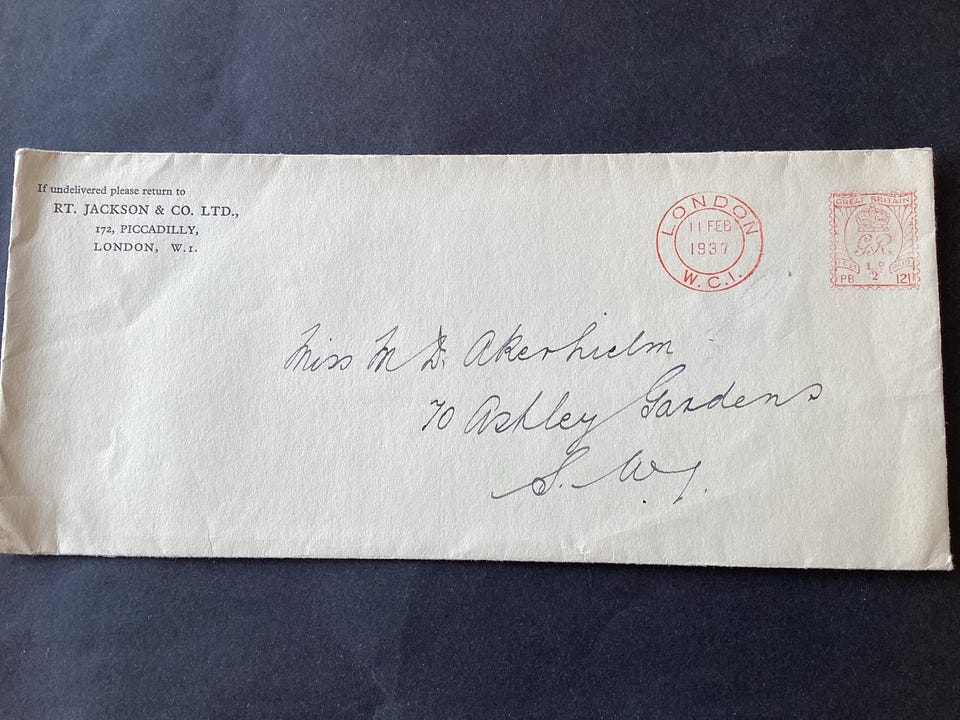 If undelivered please return to
RT. JACKSON & CO. LTD.,
172, PICCADILLY,
LONDON, W.1.
LONDON
11 FEB
1937
W.C.1.
GREAT BRITAIN
G R
1/2 D
PB 121
Miss M D. Akerhielm
70 Ashley Gardens
S. W. 1.